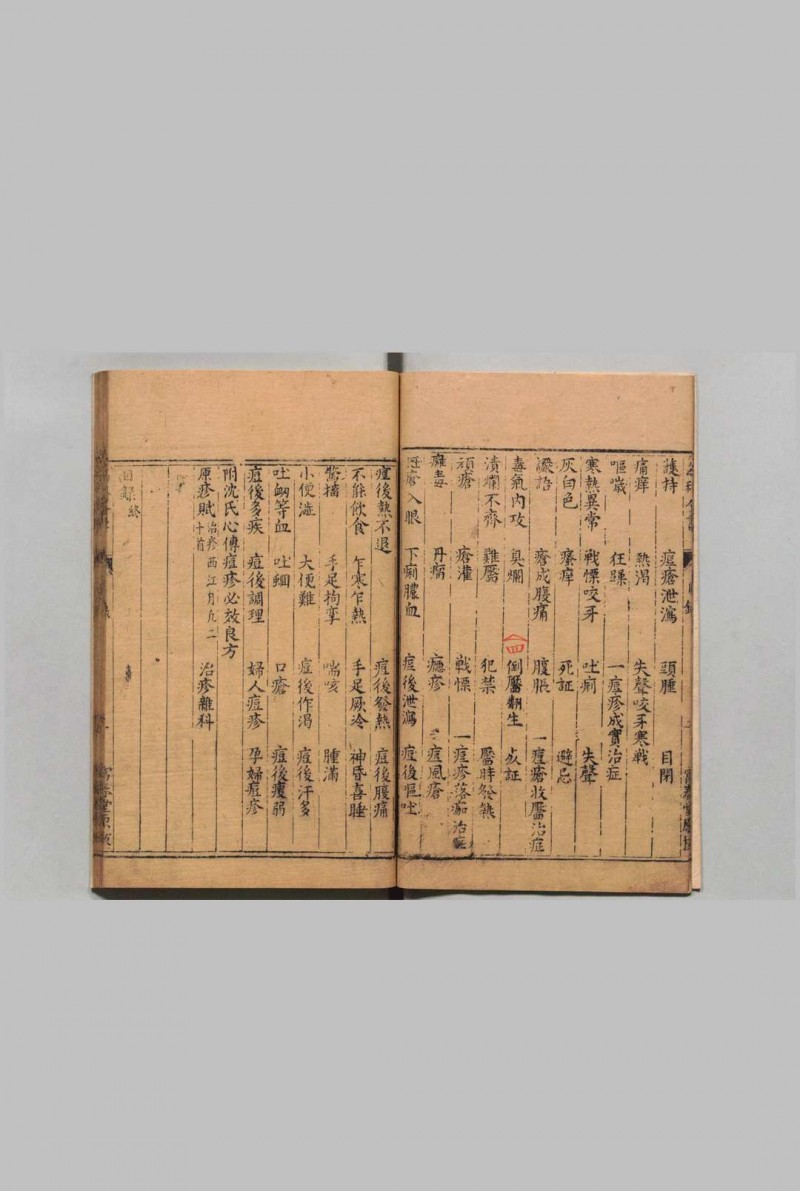 護持　痘瘡泄瀉　頭腫　目閉
痛痒　熱渴　失聲咬牙寒戰
嘔噦　狂躁　一痘疹成實治症
寒熱異常　戰慄咬牙　吐痢　失聲
灰白色　瘙痒　死証　避忌
譫語　瘡成腹痛　腹脹　一痘瘡收靨治症
毒氣內攻　臭爛　倒靨翻生
潰爛不齊　難靨　犯禁　靨時發熱
頑瘡　瘡灌　戰慄　一痘疹落痂治症
癰毒　丹瘤　癮疹　痘風瘡
入眼　下痢膿血　痘後泄瀉　痘後嘔吐
痘後熱不退　痘後發熱　痘後腹痛
不能飲食　乍寒乍熱　手足厥冷　神昏喜睡
驚搐　手足拘攣　喘咳　腫滿
小便澁　大便難　痘後作渴　痘後汗多
吐衂等血　吐蛔　口瘡　痘後瘦弱
痘後多疾　痘後調理　婦人痘疹　孕婦痘疹
附沈氏心傳痘疹必效良方
原疹賦　治疹西江月九二十首　治疹雜科
目錄終
四